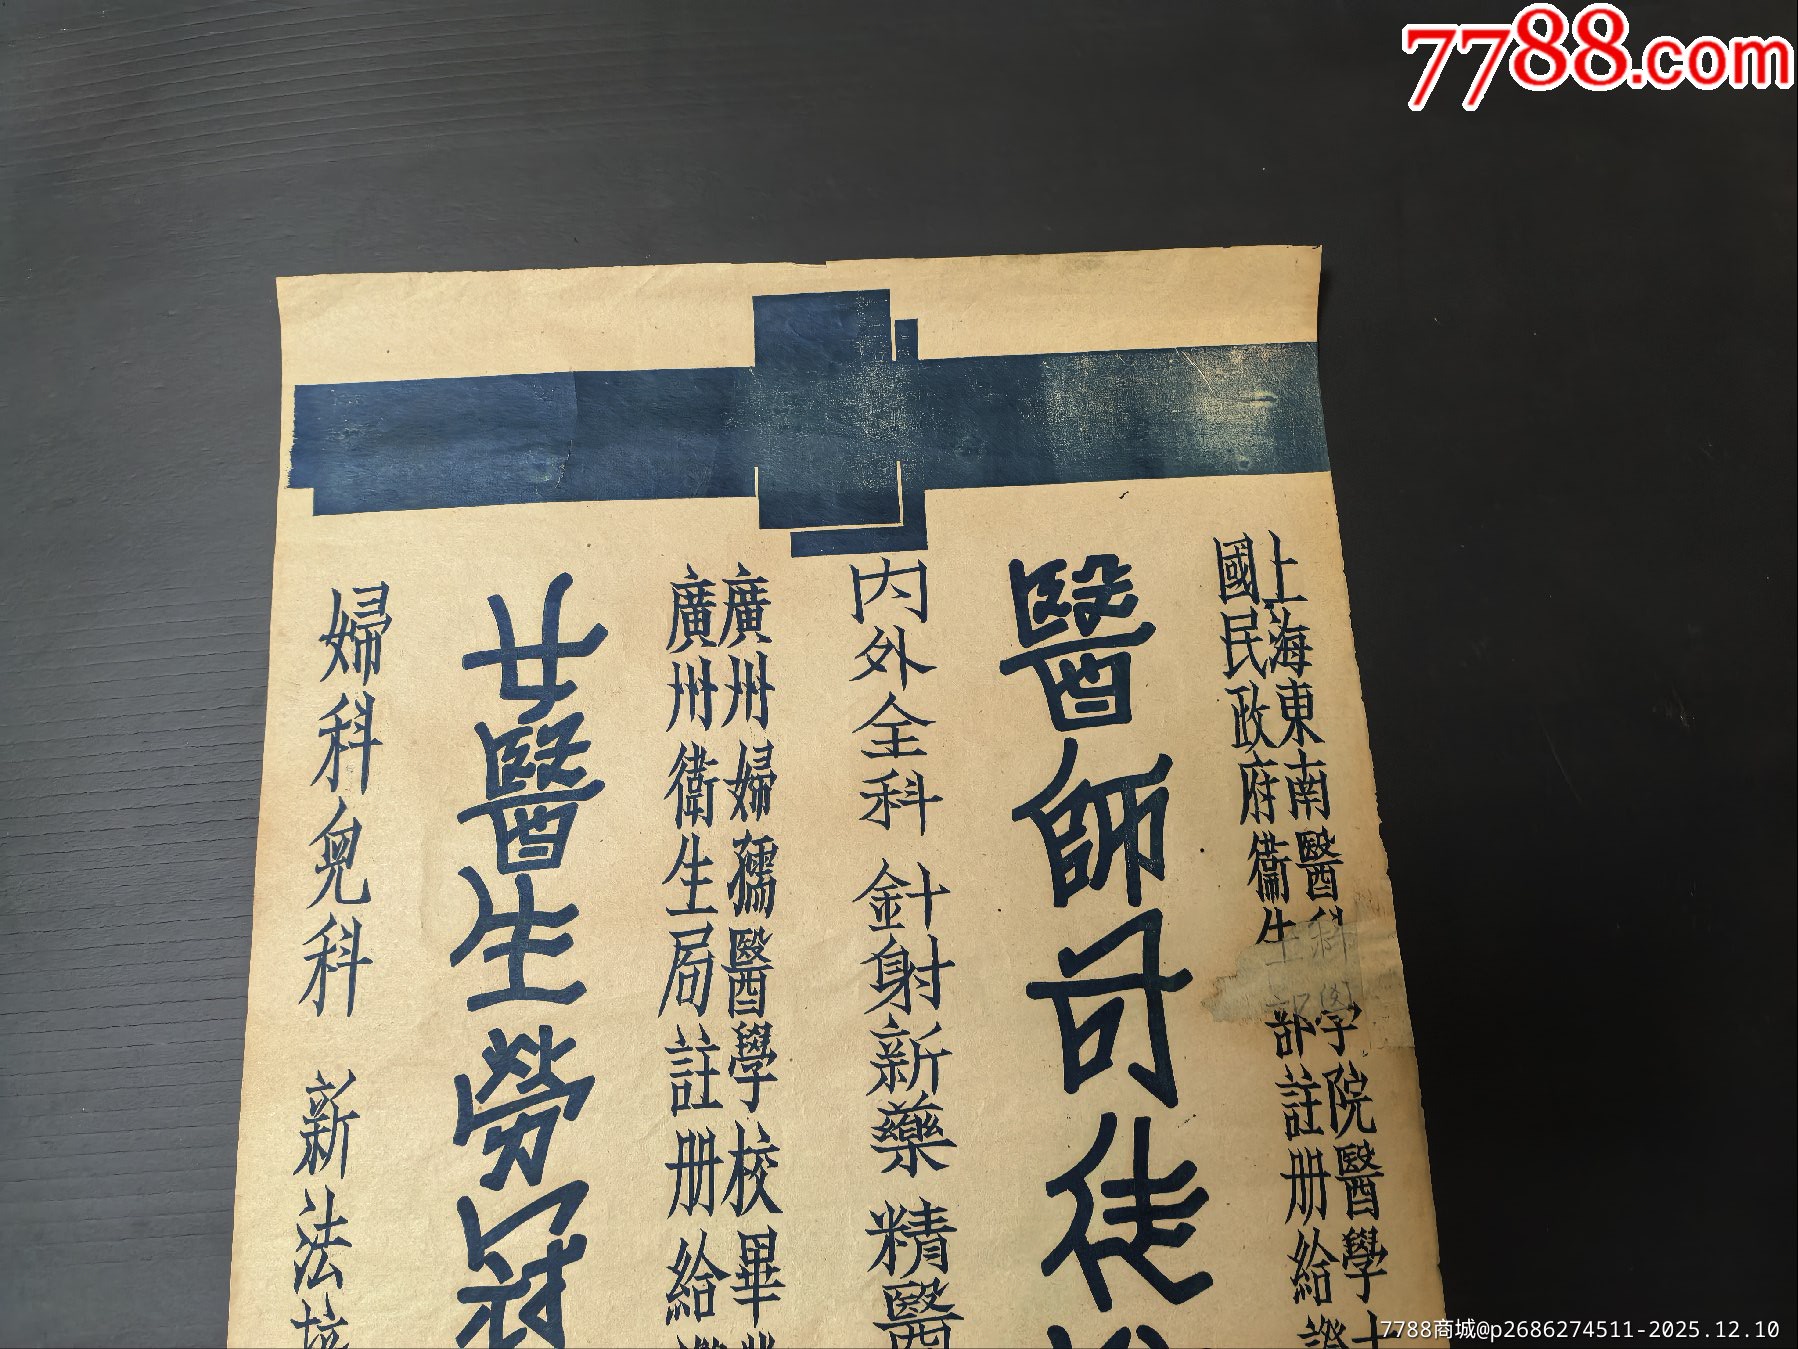 7788.com
上海東南醫科學院醫學士
國民政府衞生部註册給證
醫師司徒
内外全科 針射新藥 精醫
廣州婦孺醫學校畢業
廣州衛生局註册給
女醫生勞冠
婦科兒科 新法接
7788商城@p2686274511-2025.12.10